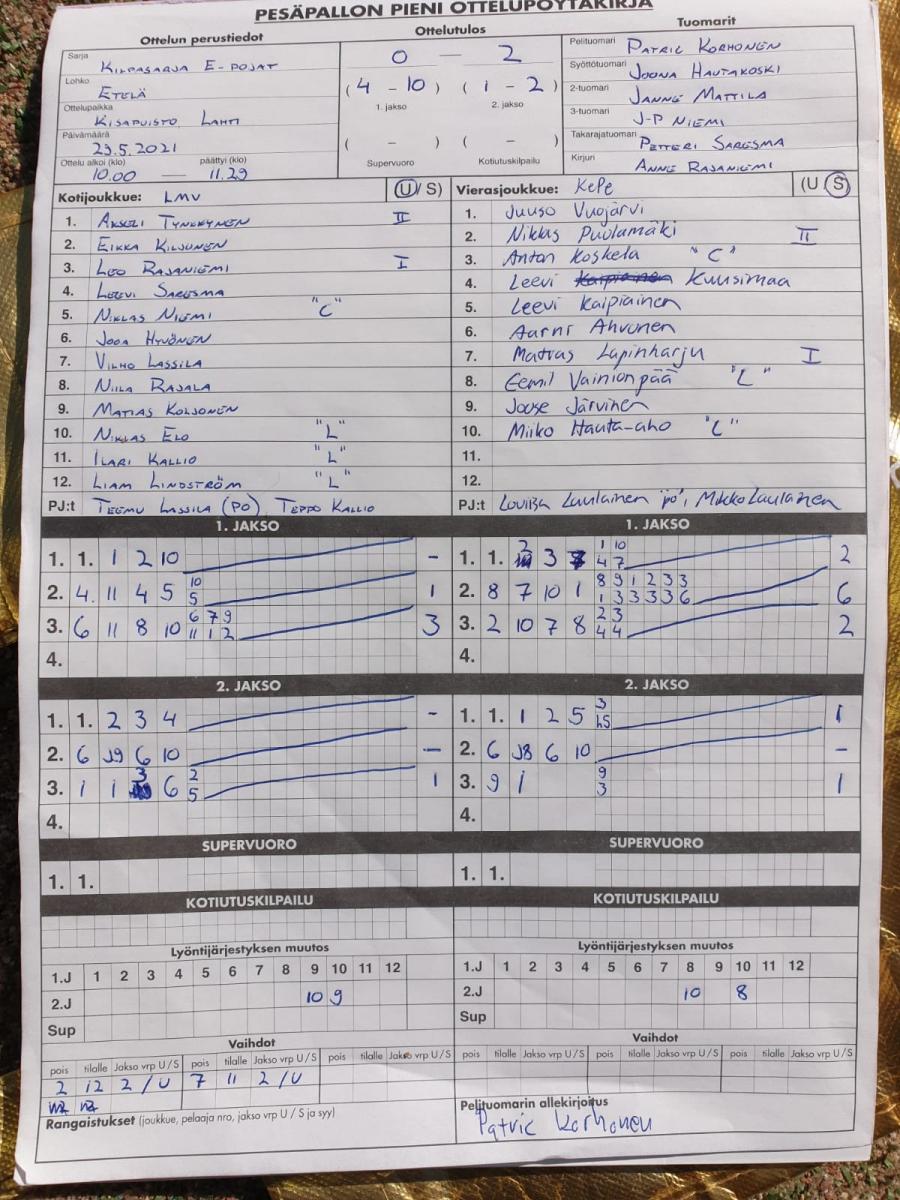 PESÄPALLON PIENI OTTELUPÖYTÄKIRJA
Ottelun perustiedot
Sarja KILPASARJA E-POJAT
Lohko ETELÄ
Ottelupaikka KISAPUISTO, LAHTI
Päivämäärä 29.5.2021
Ottelu alkoi (klo) päättyi (klo)
10.00 — 11.29
Ottelutulos
0 — 2
(4 - 10) (1 - 2)
1. jakso 2. jakso
( - ) ( - )
Supervuoro Kotiutuskilpailu
Tuomarit
Pelituomari PATRIC KORHONEN
Syöttötuomari JOONA HAUTAKOSKI
2-tuomari JANNE MATTILA
3-tuomari J-P NIEMI
Takarajatuomari PETTERI SARESMA
Kirjuri ANNE RAJANIEMI
Kotijoukkue: LMV (U/S)
1. AKSELI TYNKKYNEN II
2. EIKKA KILJUNEN
3. LEO RAJANIEMI I
4. LEEVI SARESMA
5. NIKLAS NIEMI "C"
6. JOOA HYVÖNEN
7. VILHO LASSILA
8. NIILA RAJALA
9. MATIAS KOLJONEN
10. NIKLAS ELO "L"
11. ILARI KALLIO "L"
12. LIAM LINDSTRÖM "L"
PJ:t TEEMU LASSILA (PO), TEPPO KALLIO
Vierasjoukkue: KePe (U S
1. Juuso Vuojärvi
2. Niklas Puolamäki II
3. Anton Koskela "C"
4. Leevi Kaipiainen Kuusimaa
5. Leevi Kaipiainen
6. Aarni Ahvonen
7. Matias Lapinharju I
8. Eemil Vainionpää "L"
9. Joose Järvinen
10. Miiko Hauta-aho "L"
11.
12.
PJ:t Laulainen "po", Mikko Laulainen
1. JAKSO
1. 1. 1 2 10 -
2. 4. 11 4 5 10 5 1
3. 6 11 8 10 6 7 9 11 1 2 3
4.
1. JAKSO
1. 1. 2 3 1 10 4 7 2
2. 8 7 10 1 8 9 1 2 3 3 1 3 3 3 3 6 6
3. 2 10 7 8 2 3 4 4 2
4.
2. JAKSO
1. 1. 2 3 4 -
2. 6 J9 6 10 -
3. 1 1 3 6 2 5 1
4.
2. JAKSO
1. 1. 1 2 5 3 1
2. 6 J8 6 10 -
3. 9 1 9 3 1
4.
SUPERVUORO
1. 1.
SUPERVUORO
1. 1.
KOTIUTUSKILPAILU
KOTIUTUSKILPAILU
Lyöntijärjestyksen muutos
1.J 1 2 3 4 5 6 7 8 9 10 11 12
2.J 10 9
Sup
Lyöntijärjestyksen muutos
1.J 1 2 3 4 5 6 7 8 9 10 11 12
2.J 10 8
Sup
Vaihdot
pois tilalle Jakso vrp U/S pois tilalle Jakso vrp U/S pois tilalle Jakso vrp U/S
2 12 2/U 7 11 2/U
Rangaistukset (joukkue, pelaaja nro, jakso vrp U / S ja syy)
Vaihdot
pois tilalle Jakso vrp U/S pois tilalle Jakso vrp U/S pois tilalle Jakso vrp U/S
Pelituomarin allekirjoitus
Patric Korhonen